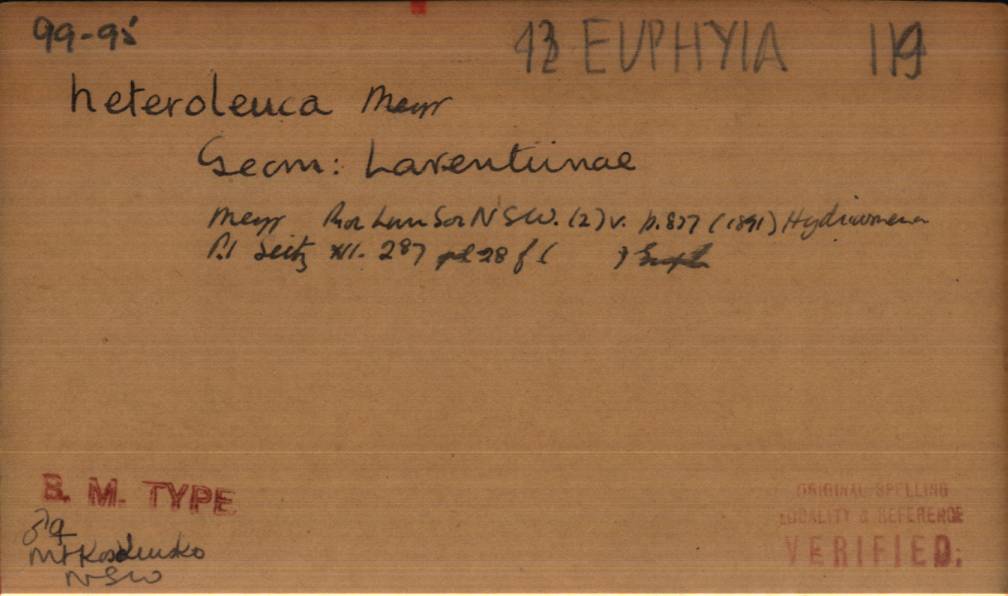 99-95
EUPHYIA 119
heteroleuca Meyr
Geom: Larentiinae
Meyr Proc Linn Soc NSW. (2) v. p.837 (1891) Hydriomena
Seitz XII. 287 pl 28 f (
B. M. TYPE
♂♀
Mt Kosciusko
NSW
ORIGINAL SPELLING
LOCALITY & REFERENCE
VERIFIED.